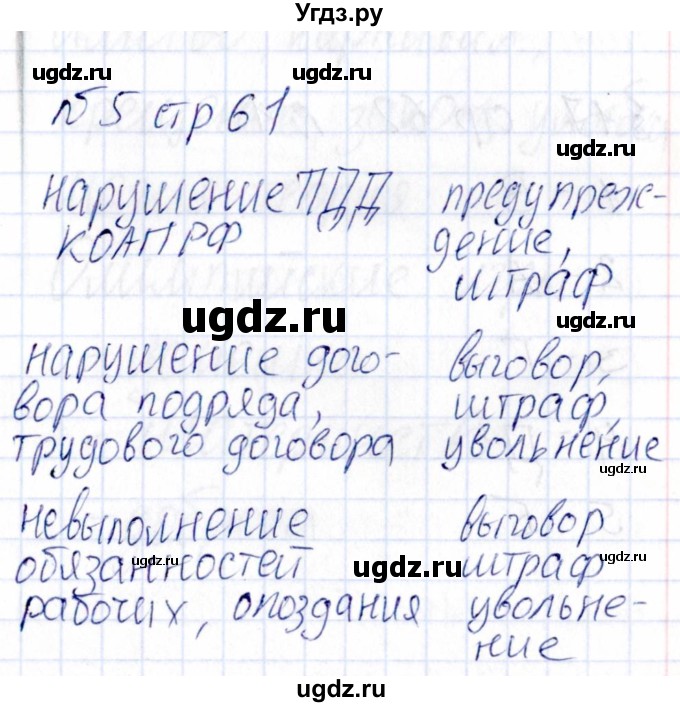 Угдз.ру
ugdz.ru ugdz.ru
№5 стр 61
нарушение ПДД предупреж-
КОАП РФ дение,
ugdz.ru
штраф
ugdz.ru
ugdz.ru
нарушение дого- выговор,
вора подряда, штраф,
трудового договора увольнение
ugdz.ru
невыполнение выговор
обязанностей штраф
ugdz.ru ugdz.ru
рабочих, опоздания увольне-
ние
ugdz.ru
ugdz.ru